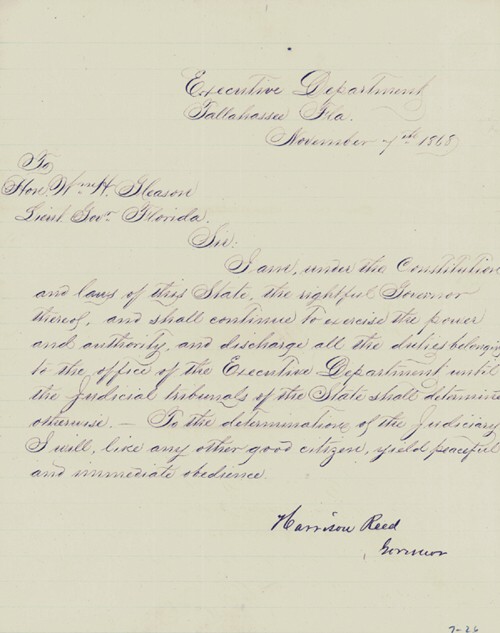 Executive Department
Tallahassee Fla.
November 7th 1868
To
Hon. Wm. H. Gleason
Lieut. Govr. Florida.
Sir:
I am, under the Constitution
and laws of this State, the rightful Governor
thereof, and shall continue to exercise the power
and authority, and discharge all the duties belonging
to the office of the Executive Department until
the Judicial tribunals of the State shall determine
otherwise. — To the determination of the Judiciary
I will, like any other good citizen, yield peaceful
and immediate obedience.
Harrison Reed
Governor
7-26